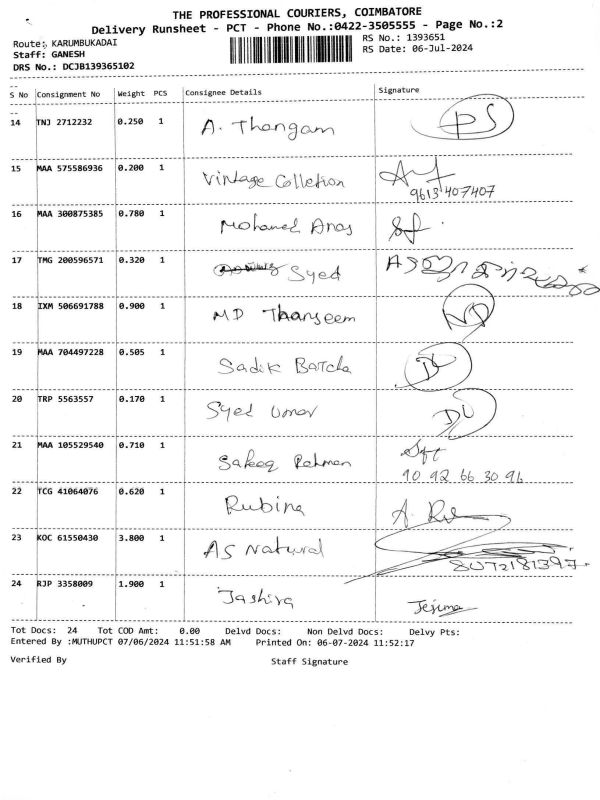 THE PROFESSIONAL COURIERS, COIMBATORE
Delivery Runsheet - PCT - Phone No.:0422-3505555 - Page No.:2
Route: KARUMBUKADAI RS No.: 1393651
Staff: GANESH RS Date: 06-Jul-2024
DRS No.: DCJB139365102
S No Consignment No Weight PCS Consignee Details Signature
14 TNJ 2712232 0.250 1 A. Thangam PS
15 MAA 575586936 0.200 1 Vintage Colletion
9613 407407
16 MAA 300875385 0.780 1 Mohamed Anas
17 TMG 200596571 0.320 1 Syed
18 IXM 506691788 0.900 1 MD Thanseem
19 MAA 704497228 0.505 1 Sadik Batcha DU
20 TRP 5563557 0.170 1 Syed Umar DU
21 MAA 105529540 0.710 1 Rehman
90 92 66 30 96
22 TCG 41064076 0.620 1 Rubina
23 KOC 61550430 3.800 1 AS Natural
24 RJP 3358009 1.900 1 Jashira
Tot Docs: 24 Tot COD Amt: 0.00 Delvd Docs: Non Delvd Docs: Delvy Pts:
Entered By :MUTHUPCT 07/06/2024 11:51:58 AM Printed On: 06-07-2024 11:52:17
Verified By Staff Signature